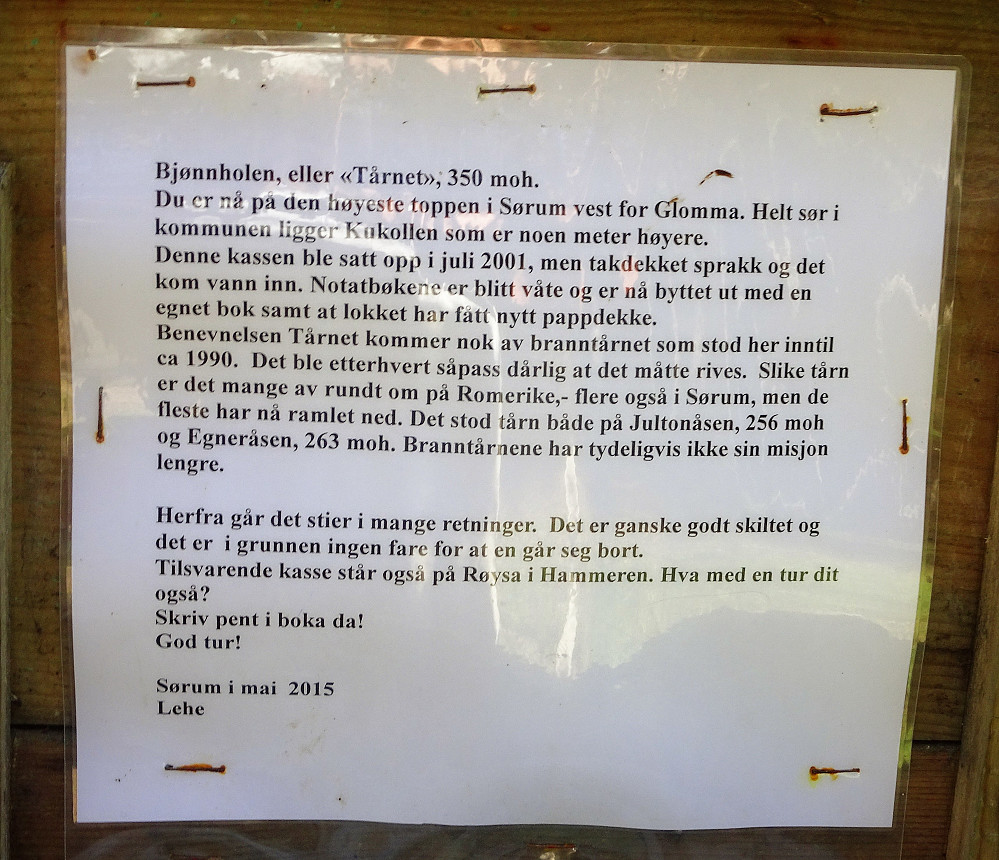 Bjønnholen, eller «Tårnet», 350 moh.
Du er nå på den høyeste toppen i Sørum vest for Glomma. Helt sør i
kommunen ligger Kukollen som er noen meter høyere.
Denne kassen ble satt opp i juli 2001, men takdekket sprakk og det
kom vann inn. Notatbøkene er blitt våte og er nå byttet ut med en
egnet bok samt at lokket har fått nytt pappdekke.
Benevnelsen Tårnet kommer nok av branntårnet som stod her inntil
ca 1990.  Det ble etterhvert såpass dårlig at det måtte rives.  Slike tårn
er det mange av rundt om på Romerike,- flere også i Sørum, men de
fleste har nå ramlet ned. Det stod tårn både på Jultonåsen, 256 moh
og Egneråsen, 263 moh. Branntårnene har tydeligvis ikke sin misjon
lengre.
Herfra går det stier i mange retninger.  Det er ganske godt skiltet og
det er  i grunnen ingen fare for at en går seg bort.
Tilsvarende kasse står også på Røysa i Hammeren. Hva med en tur dit
også?
Skriv pent i boka da!
God tur!
Sørum i mai  2015
Lehe